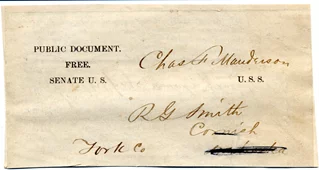 PUBLIC DOCUMENT.
FREE.
SENATE U. S.
Chas F Manderson
U. S. S.
R G Smith
Cornish
York Co